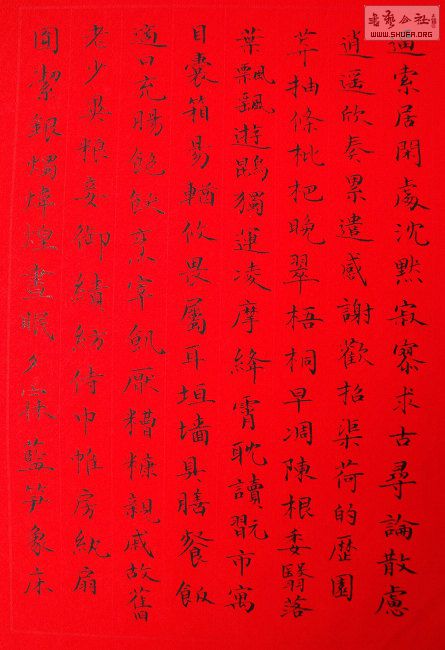 逼索居閑處沈默寂寥求古尋論散慮
逍遥欣奏累遣感謝歡招渠荷的歷園
莽抽條枇杷晚翠梧桐早凋陳根委翳落
葉飄颻遊鵾獨運凌摩絳霄耽讀翫市寓
目囊箱易輶攸畏屬耳垣墻具膳餐飯
適口充腸飽飫烹宰飢厭糟糠親戚故舊
老少異粮妾御績紡侍巾帷房紈扇
圓潔銀燭煒煌晝眠夕寐藍笋象床
书艺公社
WWW.SHUFA.ORG